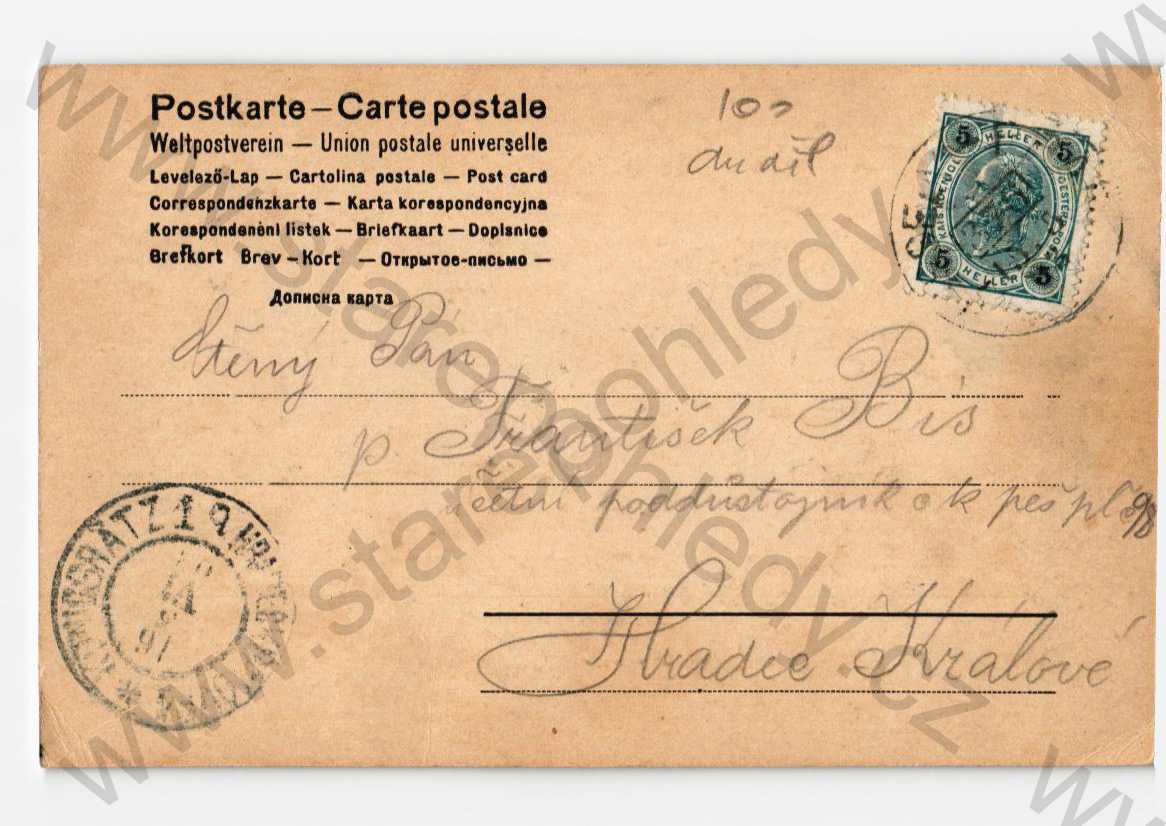 Postkarte — Carte postale
Weltpostverein — Union postale universelle
Levelező-Lap — Cartolina postale — Post card
Correspondenzkarte — Karta korespondencyjna
Korespondenční listek — Briefkaart — Dopisnice
Brefkort Brev — Kort — Открытое-письмо —
Дописна карта
5 HELLER 5
5 HELLER 5
Ctěný Pán
p. František Bis
četní poddůstojník c k peš pl č 98
Hradec Králové
KÖNIGGRÄTZ 1
www.starepohledy.cz
www.starepohledy.cz